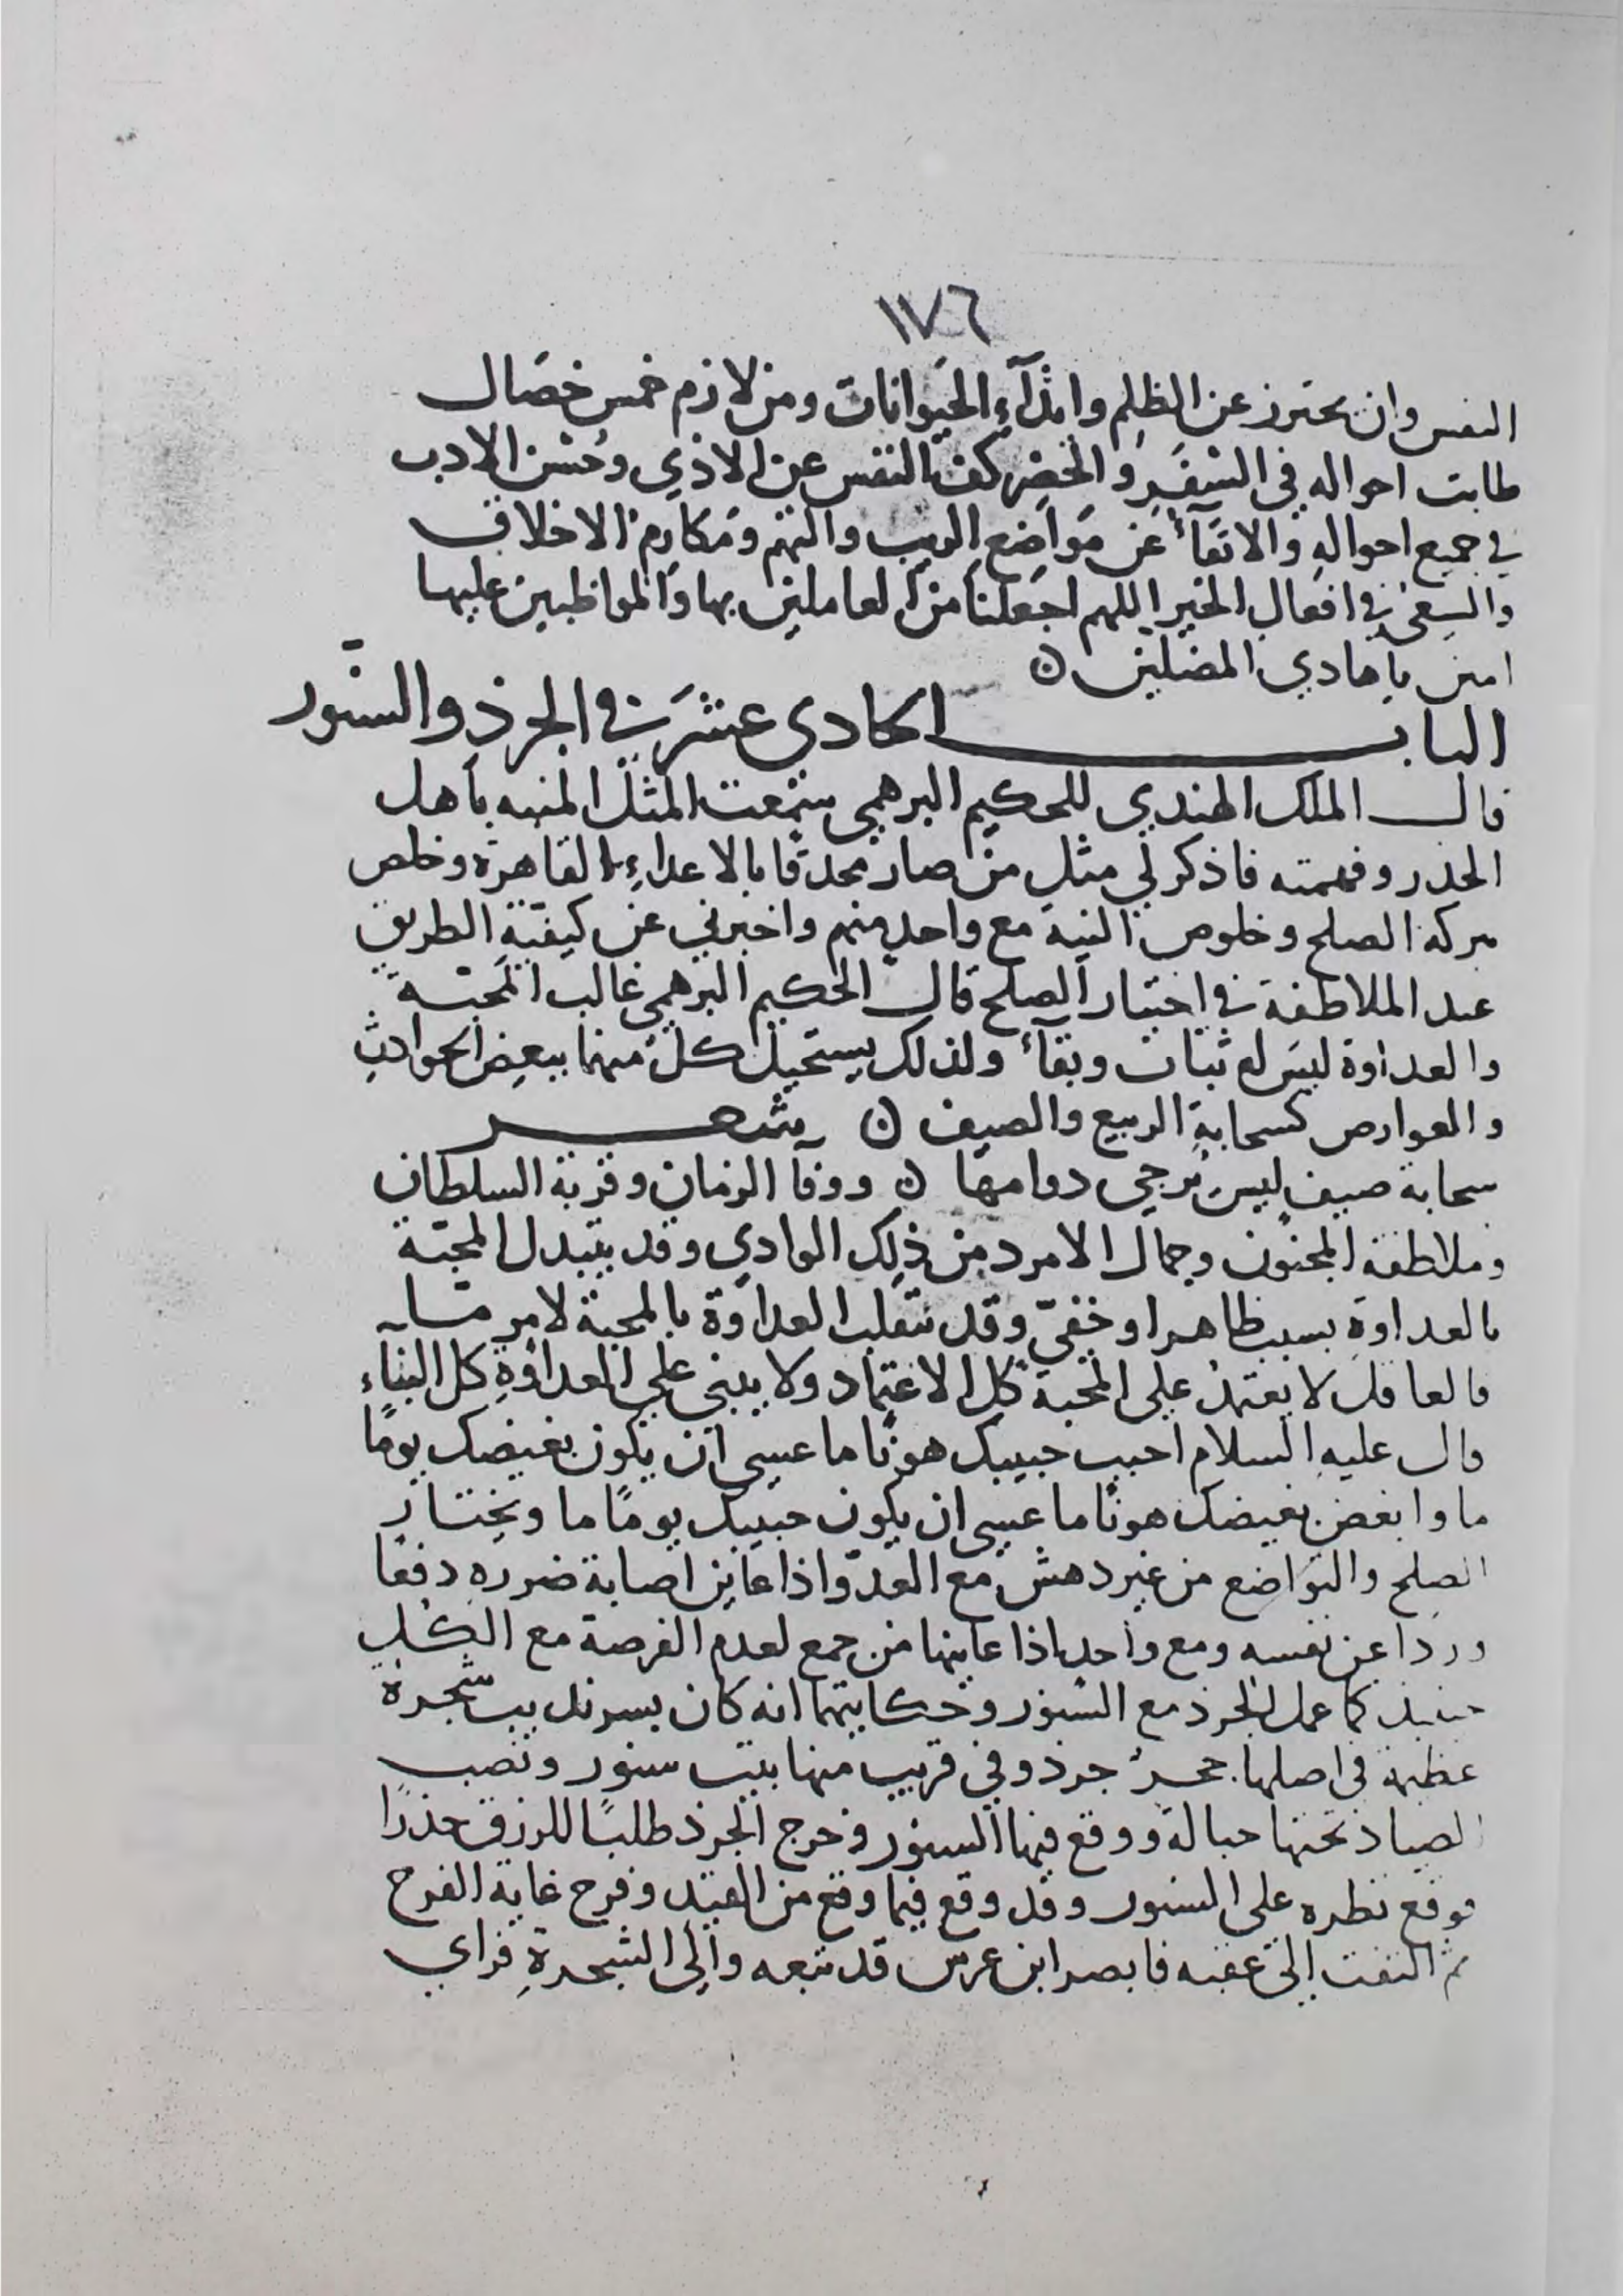 ١٧٦
النفس وان يحترز عن الظلم وايذآء الحيوانات ومن لازم خمس خصال
طابت احواله في السفر والحضر كف النفس عن الاذي وحسن الادب
في جميع احواله والاتقآء عن مواضع الريب والتهم ومكارم الاخلاق
والسعي في افعال الخير اللهم اجعلنا من العاملين بها والمواظبين عليها
امين يا هادي المضلين ن
الباب الحادى عشر في الجرذ والسنور
قال الملك الهندي للحكيم البرهمي سمعت المثل المنبه باهل
الحذر وفهمته فاذكر لي مثل من صار محدقا بالاعداء القاهرة وخلص
ببركة الصلح وخلوص النية مع واحد منهم واخبرني عن كيفية الطريق
عند الملاطفة في اختيار الصلح قال الحكيم البرهمي غالب المحبة
والعداوة ليس له ثبات وبقآء ولذلك يستحيل كل منهما ببعض الحوادث
والعوارض كسحابة الربيع والصيف ن شعر
سحابة صيف ليس يرجي دوامها ن ووفآ الزمان وقربة السلطان
وملاطفة المجنون وجمال الامرد من ذلك الوادي وقد يتبدل المحبة
بالعداوة بسبب ظاهر او خفيّ وقد تنقلب العداوة بالمحبة لامر مّا
فالعاقل لا يعتمد علي المحبة كل الاعتماد ولا يبني علي العداوة كل البنآء
قال عليه السلام احبب حبيبك هونًا ما عسي ان يكون بغيضك يومًا
ما وابغض بغيضك هونًا ما عسي ان يكون حبيبك يومًا ما ويختار
الصلح والتواضع من غير دهش مع العدوّ اذا عاين اصابة ضرره دفعًا
وردا عن نفسه ومع واحد اذا عاينها من جمع لعدم الفرصة مع الكل
حينيذ كما عمل الجرذ مع السنور وحكايتهما انه كان بسرنديب شجرة
عظيمة في اصلها جحر جرذ وفي قريب منها بيت سنور ونصب
الصياد تحتها حبالة ووقع فيها السنور وخرج الجرذ طلبًا للرزق حذرًا
فوقع نظره على السنور وقد وقع فيما وقع من القيد وفرح غاية الفرح
ثم التفت إلى عقبه فابصر ابن عرس قد تبعه والي الشجرة فراي